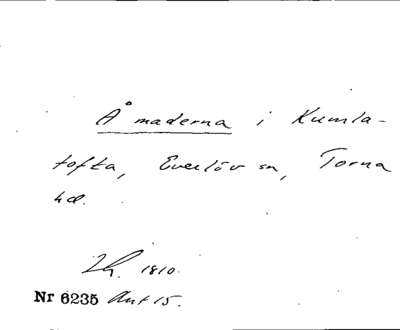 Åmaderna i Kumla-
tofta, Everlöv sn, Torna
hd.
Lh. 1810.
Nr 6235 Ant 15.